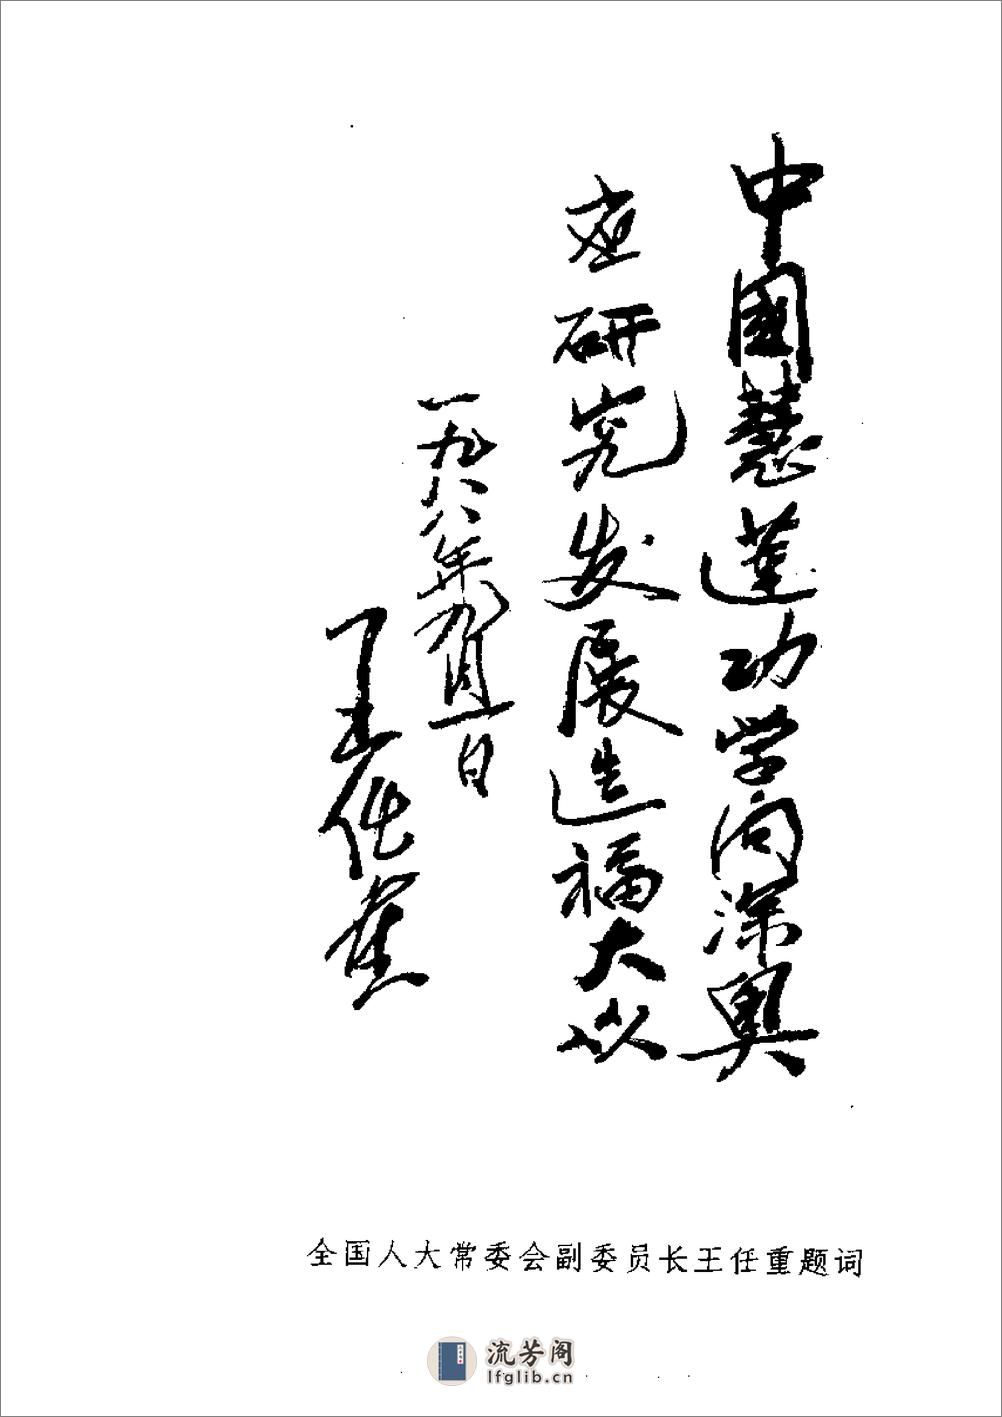 中國慧莲功学问深奥
应研究发展造福大众
一九八八年九月一日
王任重
全国人大常委会副委员长王任重题词
流芳阁
lfglib.cn